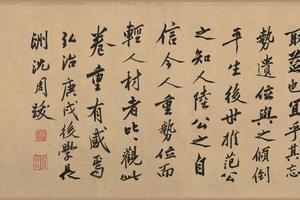 取益也宜其忘
勢遺位與之傾倒
平生後世推范公
之知人陸公之自
信令人重勢位而
輕人材者比比觀此
卷重有感焉
弘治庚戌後學長
洲沈周跋